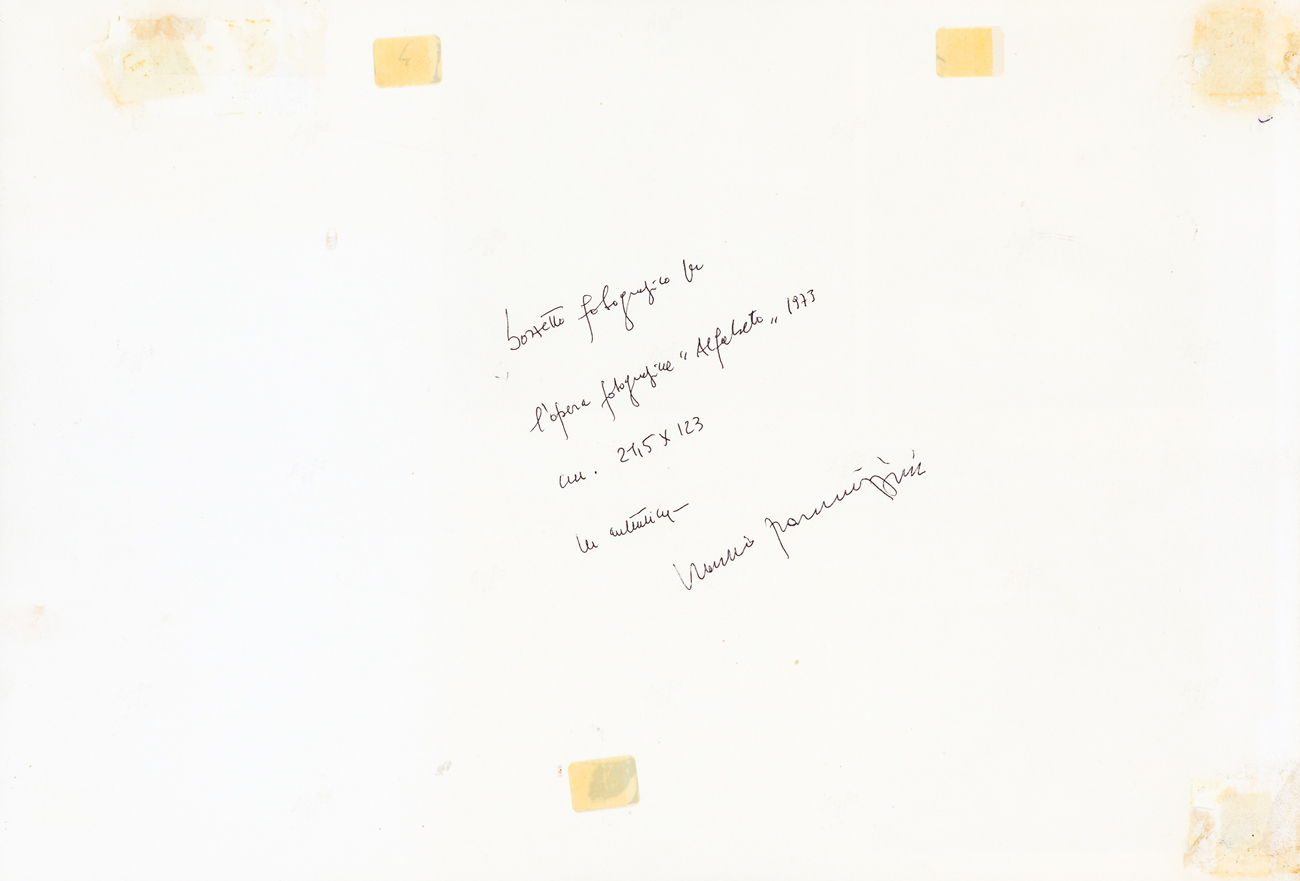 4
bozzetto fotografico per
l'opera fotografica "Alfabeto„ 1973
cm. 21,5 X 123
per autentica